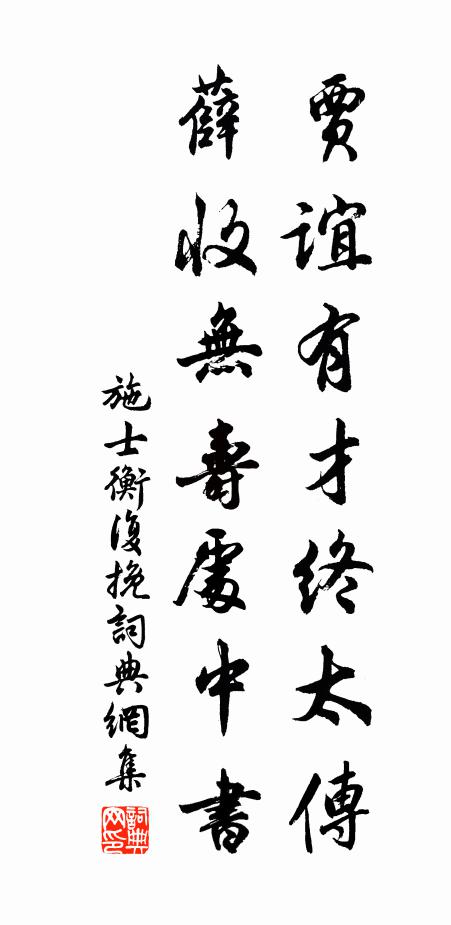 賈誼有才終太傅
薛收無壽處中書
施士衡復挽詞典網集
詞典網印